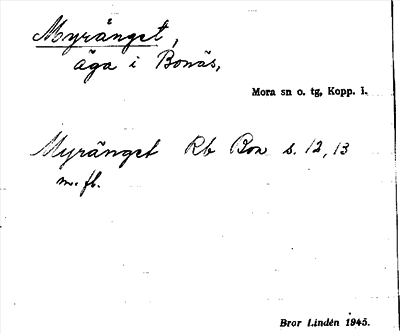 Myränget,
äga i Bonäs,
Mora sn o. tg, Kopp. l.
Myränget Rb Bon s. 12, 13
m. fl.
Bror Lindén 1945.